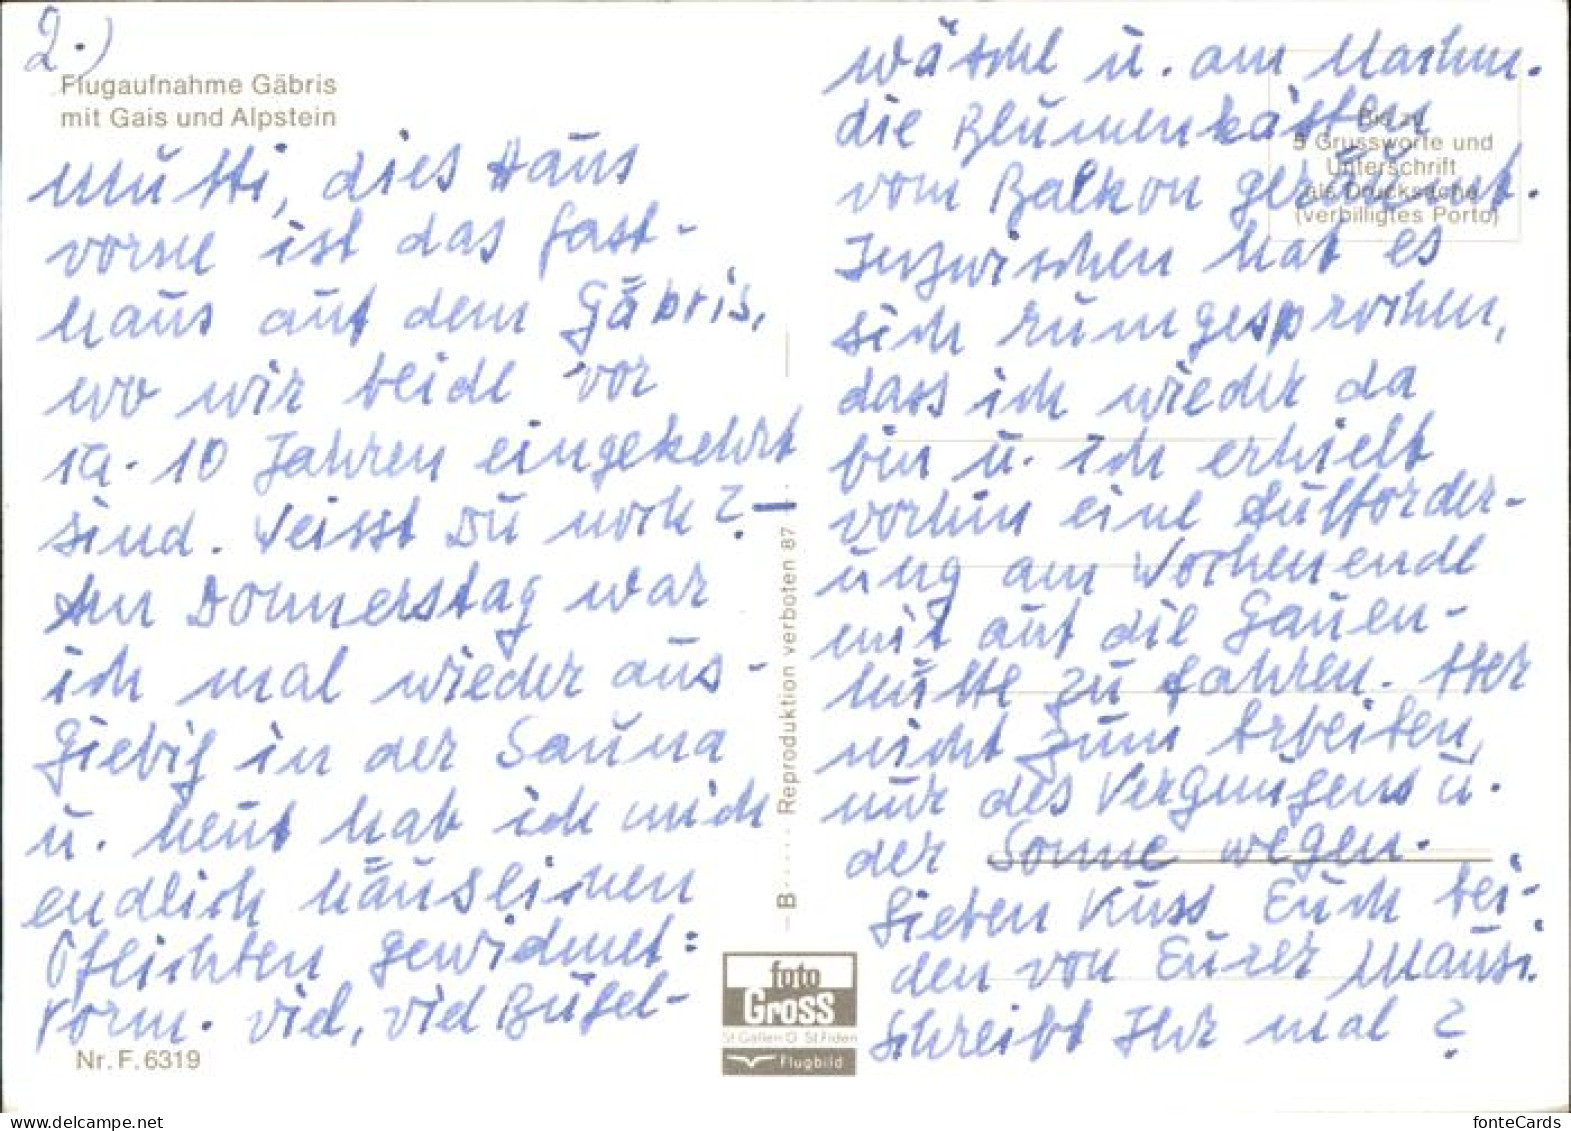 2.)
Flugaufnahme Gäbris
mit Gais und Alpstein
Mutti, dies Haus
vorne ist das Gast-
haus auf dem Gäbris,
wo wir beide vor
ca. 10 Jahren eingekehrt
sind. Weisst Du noch? —
Am Donnerstag war
ich mal wieder aus-
giebig in der Sauna
u. heut hab ich mich
endlich häuslichen
Pflichten gewidmet:
Vorm. viel, viel Bügel-
Nr. F. 6319
wäsche u. am Nachm.
die Blumenkästen
vom Balkon geräumt.
Inzwischen hat es
sich rumgesprochen,
dass ich wieder da
bin u. ich erhielt
vorhin eine Aufforder-
ung am Wochenende
mit auf die Gauen-
hütte zu fahren. Aber
nicht zum Arbeiten,
nur des Vergnügens u.
der Sonne wegen.
Lieben Kuss Euch bei-
den von Eurer Mausi.
Schreibt Ihr mal?
Bis zu
5 Grussworte und
Unterschrift
als Drucksache
(verbilligtes Porto)
B Reproduktion verboten 87
foto
Gross
St. Gallen O St. Fiden
Flugbild
fonteCards